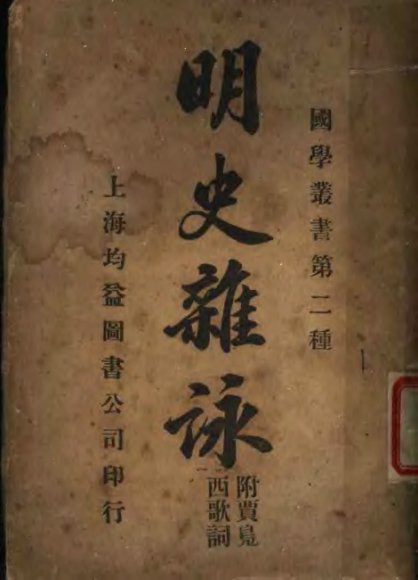 國學叢書第二種
明史雜詠
附賈鳧
西歌詞
上海均益圖書公司印行